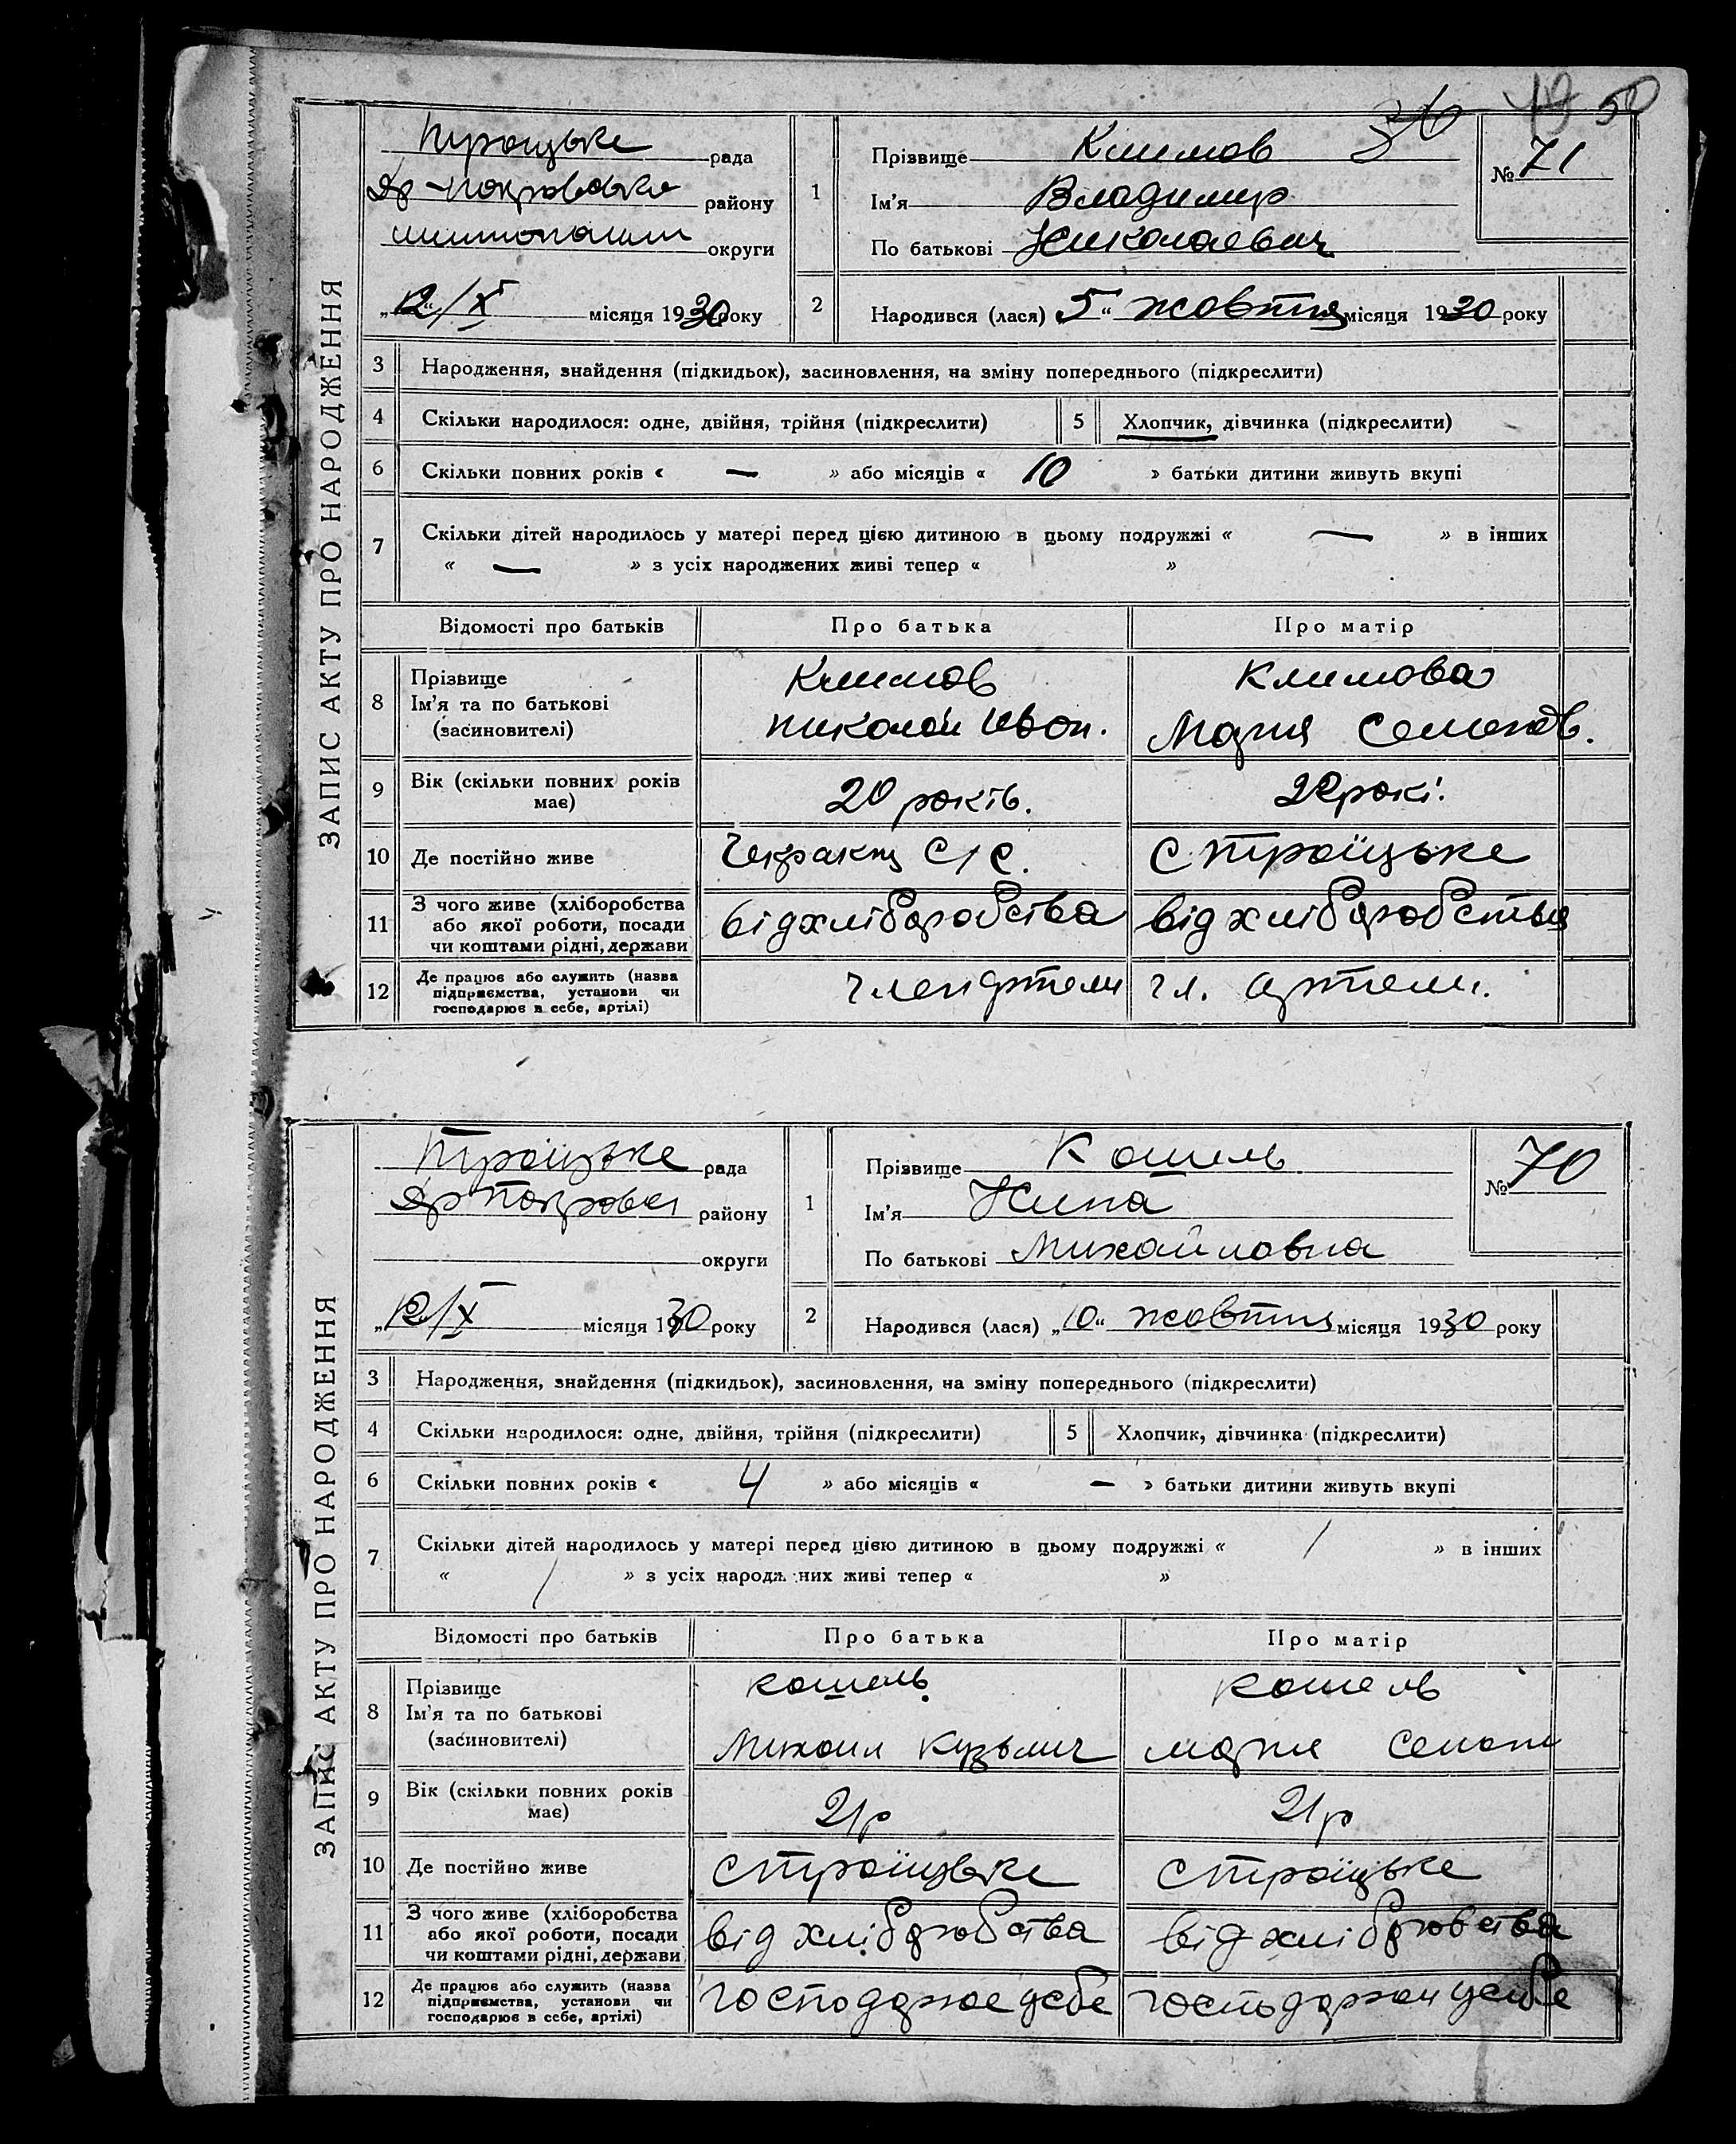 49 50
36
ЗАПИС АКТУ ПРО НАРОДЖЕННЯ
Троицьке рада
района
округи
„12/X“ місяця 1930 року
1
Прізвище Климов
Ім'я Владимир
По батькові Николаевич
№ 71
2
Народився (лася) „5“ жовтня місяця 1930 року
3 Народження, знайдення (підкидьок), засиновлення, на зміну попереднього (підкреслити)
4 Скільки народилося: одне, двійня, трійня (підкреслити) 5 Хлопчик, дівчинка (підкреслити)
6 Скільки повних років « — » або місяців « 10 » батьки дитини живуть вкупі
7 Скільки дітей народилось у матері перед цією дитиною в цьому подружжі « — » в інших
« — » з усіх народжених живі тепер « »
Відомості про батьків Про батька Про матір
8 Прізвище
Ім'я та по батькові
(засиновителі)
Климов
Николай Иван.
Климова
Мария Семенов.
9 Вік (скільки повних років
має)
20 років. 22 рокі.
10 Де постійно живе С/С. С Троїцьке
11 З чого живе (хліборобства
або якої роботи, посади
чи коштами рідні, держави
від хліборобства від хліборобства
12 Де працює або служить (назва
підприємства, установи чи
господарює в себе, артілі)
член артели чл. артели.
ЗАПИС АКТУ ПРО НАРОДЖЕННЯ
Троїцьке рада
району
округи
„12/X місяця 1930 року
1
Прізвище Кошель
Ім'я Нина
По батькові Михайловна
№ 70
2
Народився (лася) „10“ жовтня місяця 1930 року
3 Народження, знайдення (підкидьок), засиновлення, на зміну попереднього (підкреслити)
4 Скільки народилося: одне, двійня, трійня (підкреслити) 5 Хлопчик, дівчинка (підкреслити)
6 Скільки повних років « 4 » або місяців « — » батьки дитини живуть вкупі
7 Скільки дітей народилось у матері перед цією дитиною в цьому подружжі « / » в інших
« / » з усіх народжених живі тепер « »
Відомості про батьків Про батька Про матір
8 Прізвище
Ім'я та по батькові
(засиновителі)
Кошель
Михаил Кузьмич
Кошель
Мария
9 Вік (скільки повних років
має)
21 р 21 р
10 Де постійно живе С Троїцьке С Троїцьке
11 З чого живе (хліборобства
або якої роботи, посади
чи коштами рідні, держави
від хліборобства від хліборобства
12 Де працює або служить (назва
підприємства, установи чи
господарює в себе, артілі)
господарює у себе